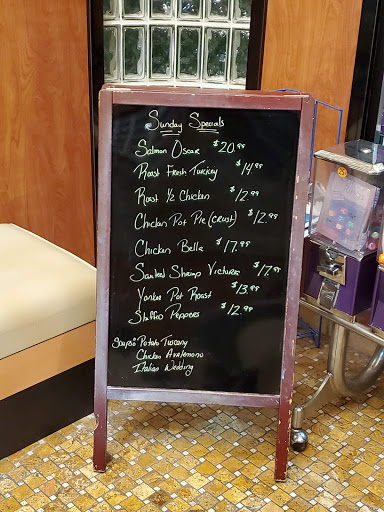 Sunday Specials
Salmon Oscar $20.99
Roast Fresh Turkey $14.99
Roast ½ Chicken $12.99
Chicken Pot Pie (crust) $12.99
Chicken Bella $17.99
Sauteed Shrimp Victores $17.99
Yankee Pot Roast $13.99
Stuffed Peppers $12.99
Soups: Potato Tuscany
Chicken Avalemono
Italian Wedding